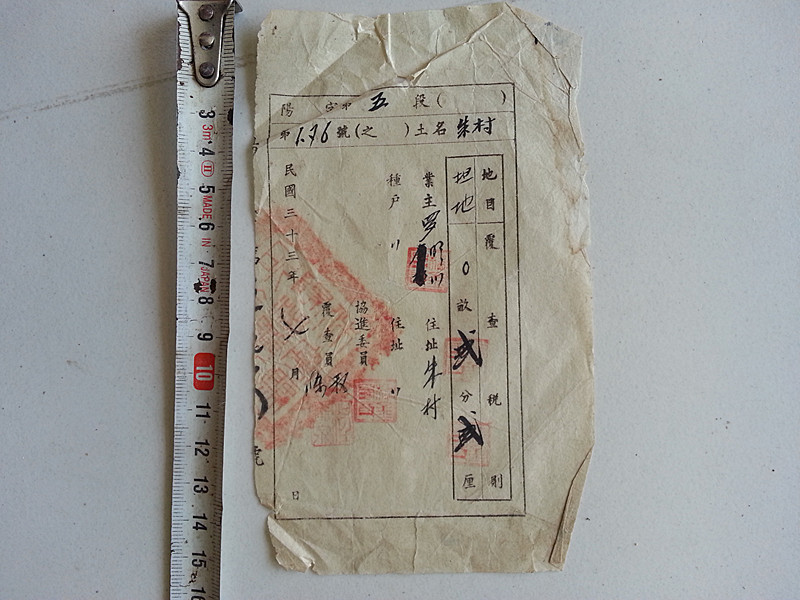 陽 字第五段( )
第176號(之 )土名朱村
地目 覆查稅則
坦地 0畝弍分弍厘
業主罗 住址朱村
種戶〃 住址〃
協進委員
覆查員
民國三十三年六月 日
號
3m
MADE IN JAPAN
3
4
5
6
7
8
9
10
11
12
13
14
15
16